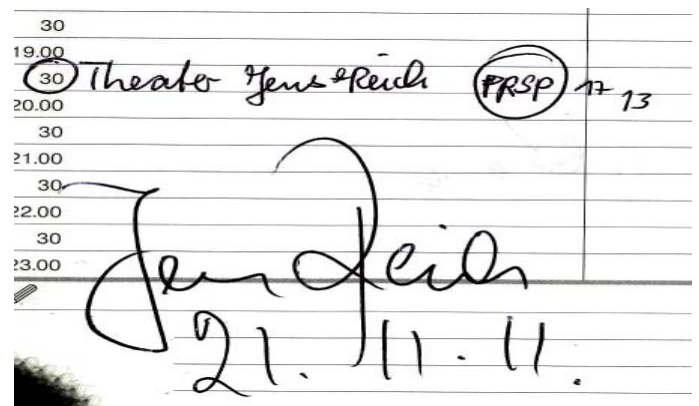 30
19.00
30 Theater Jens Reich PRSP 17 13
20.00
30
21.00
30
22.00
30
23.00
Jens Reich
21. 11. 11.